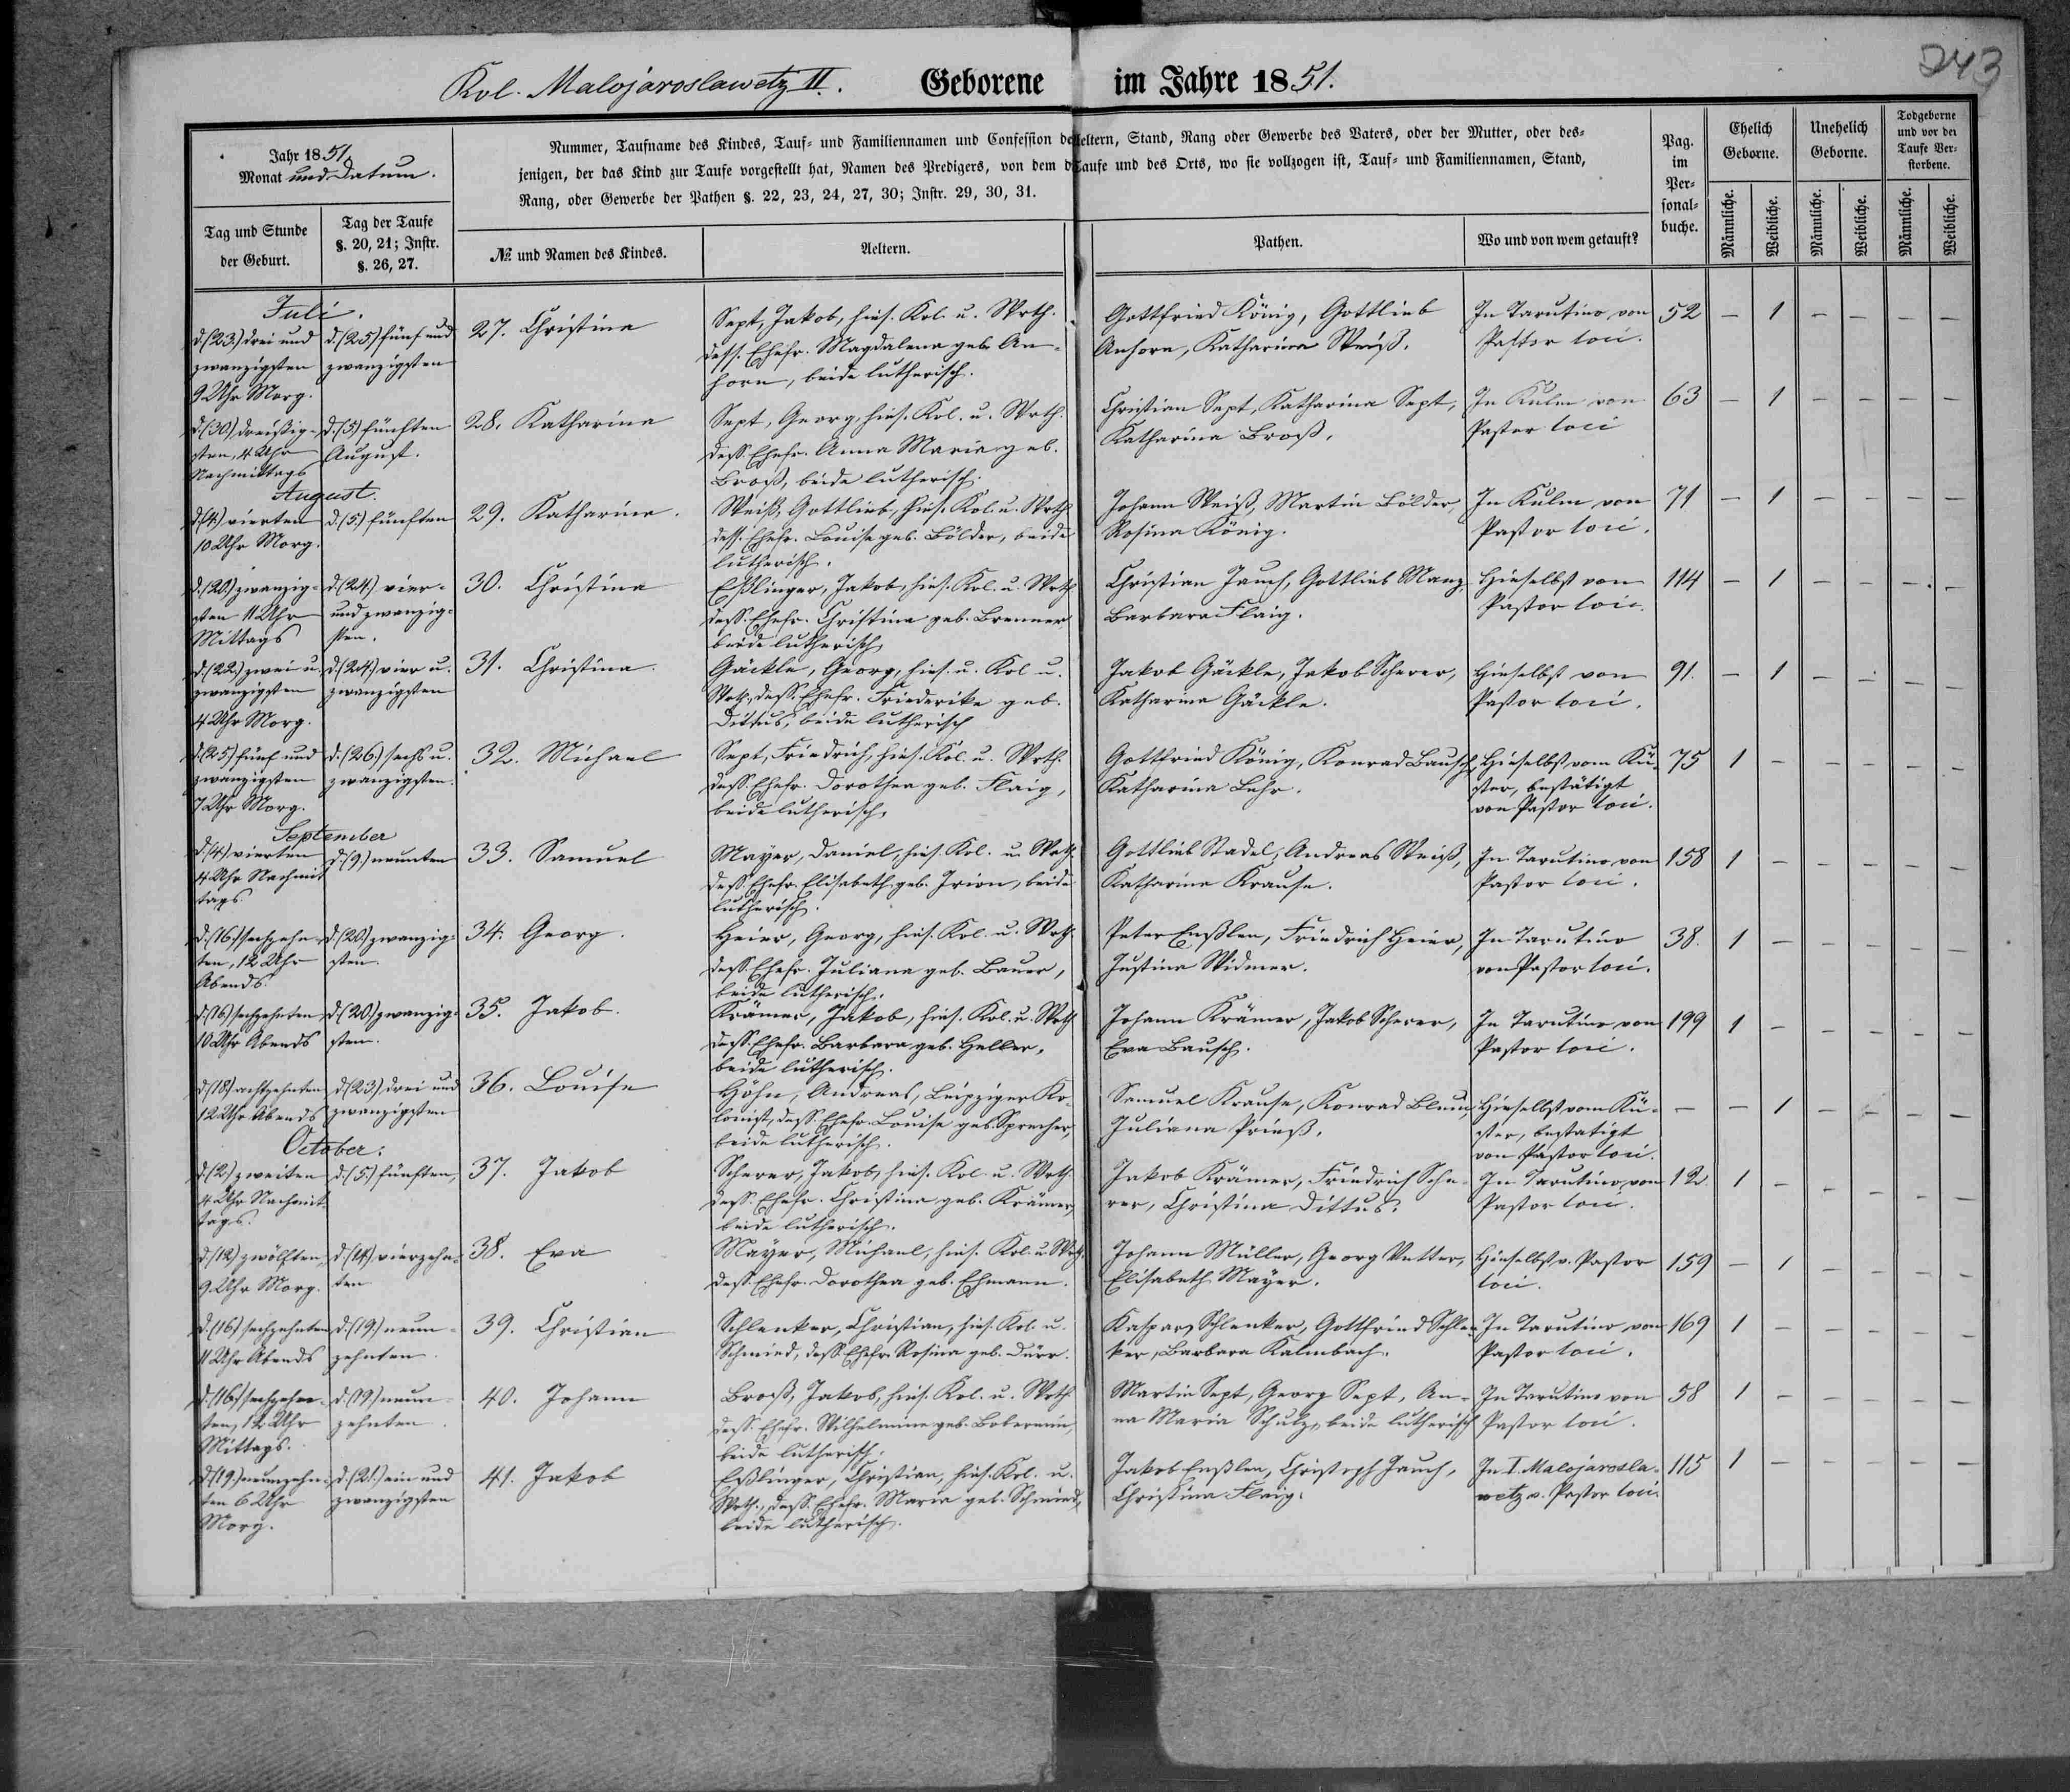 243
Kol. Malojaroslawetz II. Geborene im Jahre 1851.
Jahr 1851.
Monat und Datum.
Nummer, Taufname des Kindes, Tauf- und Familiennamen und Confession der Aeltern, Stand, Rang oder Gewerbe des Vaters, oder der Mutter, oder des-
jenigen, der das Kind zur Taufe vorgestellt hat, Namen des Predigers, von dem die Taufe und des Orts, wo sie vollzogen ist, Tauf- und Familiennamen, Stand,
Rang, oder Gewerbe der Pathen §. 22, 23, 24, 27, 30; Instr. 29, 30, 31.
Pag.
im
Per-
sonal-
buche.
Ehelich
Geborne.
Unehelich
Geborne.
Todgeborne
und vor der
Taufe Ver-
storbene.
Tag und Stunde
der Geburt.
Tag der Taufe
§. 20, 21; Instr.
§. 26, 27.
№ und Namen des Kindes.
Aeltern.
Pathen.
Wo und von wem getauft?
Männliche.
Weibliche.
Männliche.
Weibliche.
Männliche.
Weibliche.
Juli.
d. (23.) drei und
zwanzigsten
9 Uhr Morg.
d. (25) fünf und
zwanzigsten
27. Christine
Sept, Jakob, hies. Kol. u. Wrth.
dess. Ehefr. Magdalena geb. An-
horn, beide lutherisch.
Gottfried König, Gottlieb
Anhorn, Katharina Weiß.
In Tarutino von
Pastor loci.
52 — 1 — — — —
d. (30.) dreißig-
sten, 4 Uhr
Nachmittags
d. (5) fünften
August.
28. Katharina
Sept, Georg, hies. Kol. u. Wrth.
dess. Ehefr. Anna Maria geb.
Broß, beide lutherisch.
Christian Sept, Katharina Sept,
Katharina Broß.
In Kulm von
Pastor loci
63 — 1 — — — —
August.
d. (4.) vierten
10 Uhr Morg.
d. (5.) fünften
29. Katharina.
Weiß, Gottlieb, hies. Kol. u. Wrth.
dess. Ehefr. Louise geb. Bölder, beide
lutherisch.
Johann Weiß, Martin Bölder,
Rosina König.
In Kulm von
Pastor loci.
71 — 1 — — — —
d. (20.) zwanzig-
sten 11 Uhr
Mittags
d. (24.) vier-
und zwanzig-
sten.
30. Christina
Eßlinger, Jakob, hies. Kol. u. Wrth.
dess. Ehefr. Christina geb. Brenner,
beide lutherisch
Christian Jauch, Gottlieb Manz,
Barbara Flaig.
Hieselbst von
Pastor loci.
114 — 1 — — — —
d. (22.) zwei u.
zwanzigsten
4 Uhr Morg.
d. (24.) vier u.
zwanzigsten
31. Christina.
Gäckle, Georg, hies. u. Kol u.
Wrth., dess. Ehefr. Friederike geb.
Dittus, beide lutherisch
Jakob Gäckle, Jakob Scherer,
Katharina Gäckle.
Hieselbst von
Pastor loci.
91. — 1 — — — —
d. (25) fünf und
zwanzigsten
7 Uhr Morg.
d. (26.) sechs u.
zwanzigsten.
32. Michael
Sept, Friedrich, hies. Kol. u. Wrth.
dess. Ehefr. Dorothea geb. Flaig,
beide lutherisch.
Gottfried König, Konrad Bausch,
Katharina Lehr.
Hieselbst vom Kü-
ster, bestätigt
von Pastor loci.
75 1 — — — — —
September
d. (4.) vierten
4 Uhr Nachmit-
tags
d. (9.) neunten
33. Samuel
Mayer, Daniel, hies. Kol. u. Wrth.
dess. Ehefr. Elisabeth geb. Irion, beide
lutherisch.
Gottlieb Stadel, Andreas Weiß,
Katharina Krause.
In Tarutino von
Pastor loci.
158 1 — — — — —
d. (16.) sechzehn-
ten, 12 Uhr
Abends.
d. (20.) zwanzig-
sten.
34. Georg.
Heier, Georg, hies. Kol. u. Wrth.
dess. Ehefr. Juliana geb. Bauer,
beide lutherisch.
Peter Enßlen, Friedrich Heier,
Justina Widmer.
In Tarutino
von Pastor loci.
38. 1 — — — — —
d. (16) sechzehnten
10 Uhr Abends
d. (20.) zwanzig-
sten.
35. Jakob.
Krämer, Jakob, hies. Kol. u. Wrth
dess. Ehefr. Barbara geb. Heller,
beide lutherisch.
Johann Krämer, Jakob Scherer,
Eva Bausch.
In Tarutino von
Pastor loci.
199 1 — — — — —
d. (18.) achtzehnten
12 Uhr Abends
d. (23.) drei und
zwanzigsten
36. Louise
Höhn, Andreas, Leipziger Ko-
lonist, dess. Ehefr. Louise geb. Sprecher,
beide lutherisch.
Samuel Krause, Konrad Blum,
Juliana Prieß.
Hieselbst vom Kü-
ster, bestatigt
von Pastor loci.
— — 1 — — — —
October.
d. (2.) zweiten
4 Uhr Nachmit-
tags.
d. (5.) fünften,
37. Jakob
Scherer, Jakob, hies. Kol. u. Wrth.
dess. Ehefr. Christina geb. Krämer,
beide lutherisch.
Jakob Krämer, Friedrich Sche-
rer, Christina Dittus.
In Tarutino von
Pastor loci.
12. 1 — — — — —
d. (12) zwölften
9 Uhr Morg.
d. (14.) vierzehn-
ten
38. Eva
Mayer, Michael, hies. Kol. u. Wrth.
dess. Ehefr. Dorothea geb. Ehmann.
Johann Müller, Georg Vetter,
Elisabeth Mayer.
Hieselbst v. Pastor
loci.
159 — 1 — — — —
d. (16) sechzehnten
11 Uhr Abends
d. (19.) neun-
zehnten.
39. Christian
Schlenker, Christian, hies. Kol. u.
Schmied, dess. Ehefr. Rosina geb. Dürr.
Kaspar Schlenker, Gottfried Schlen-
ker, Barbara Kalmbach.
In Tarutino von
Pastor loci.
169 1 — — — — —
d. (16) sechzehn-
ten, 12 Uhr
Mittags.
d. (19.) neun-
zehnten.
40. Johann
Broß, Jakob, hies. Kol. u. Wrth
dess. Ehefr. Wilhelmine geb. Bobermin,
beide lutherisch.
Martin Sept, Georg Sept, An-
na Maria Schulz, beide lutherisch
In Tarutino von
Pastor loci.
58 1 — — — — —
d. (19.) neunzehn-
ten 6 Uhr
Morg.
d. (21.) ein und
zwanzigsten
41. Jakob
Eßlinger, Christian, hies. Kol. u.
Wrth., dess. Ehefr. Maria geb. Schmied,
beide lutherisch.
Jakob Enßlen, Christoph Jauch,
Christina Flaig.
In I. Malojarosla-
wetz v. Pastor loci.
115 1 — — — — —